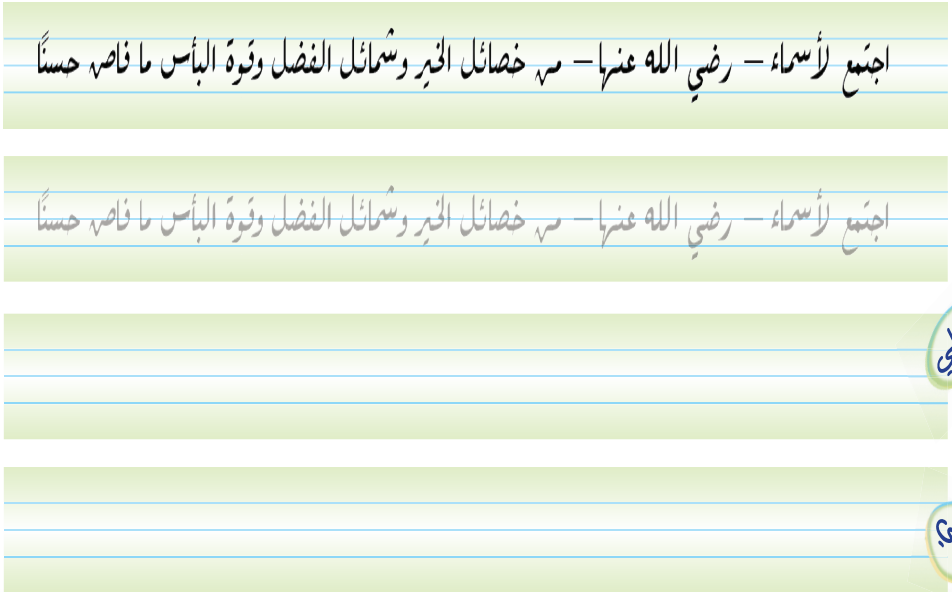 اجتمع لأسماء – رضي الله عنها – من خصائل الخير وشمائل الفضل وقوة البأس ما فاض حسنًا
اجتمع لأسماء – رضي الله عنها – من خصائل الخير وشمائل الفضل وقوة البأس ما فاض حسنًا